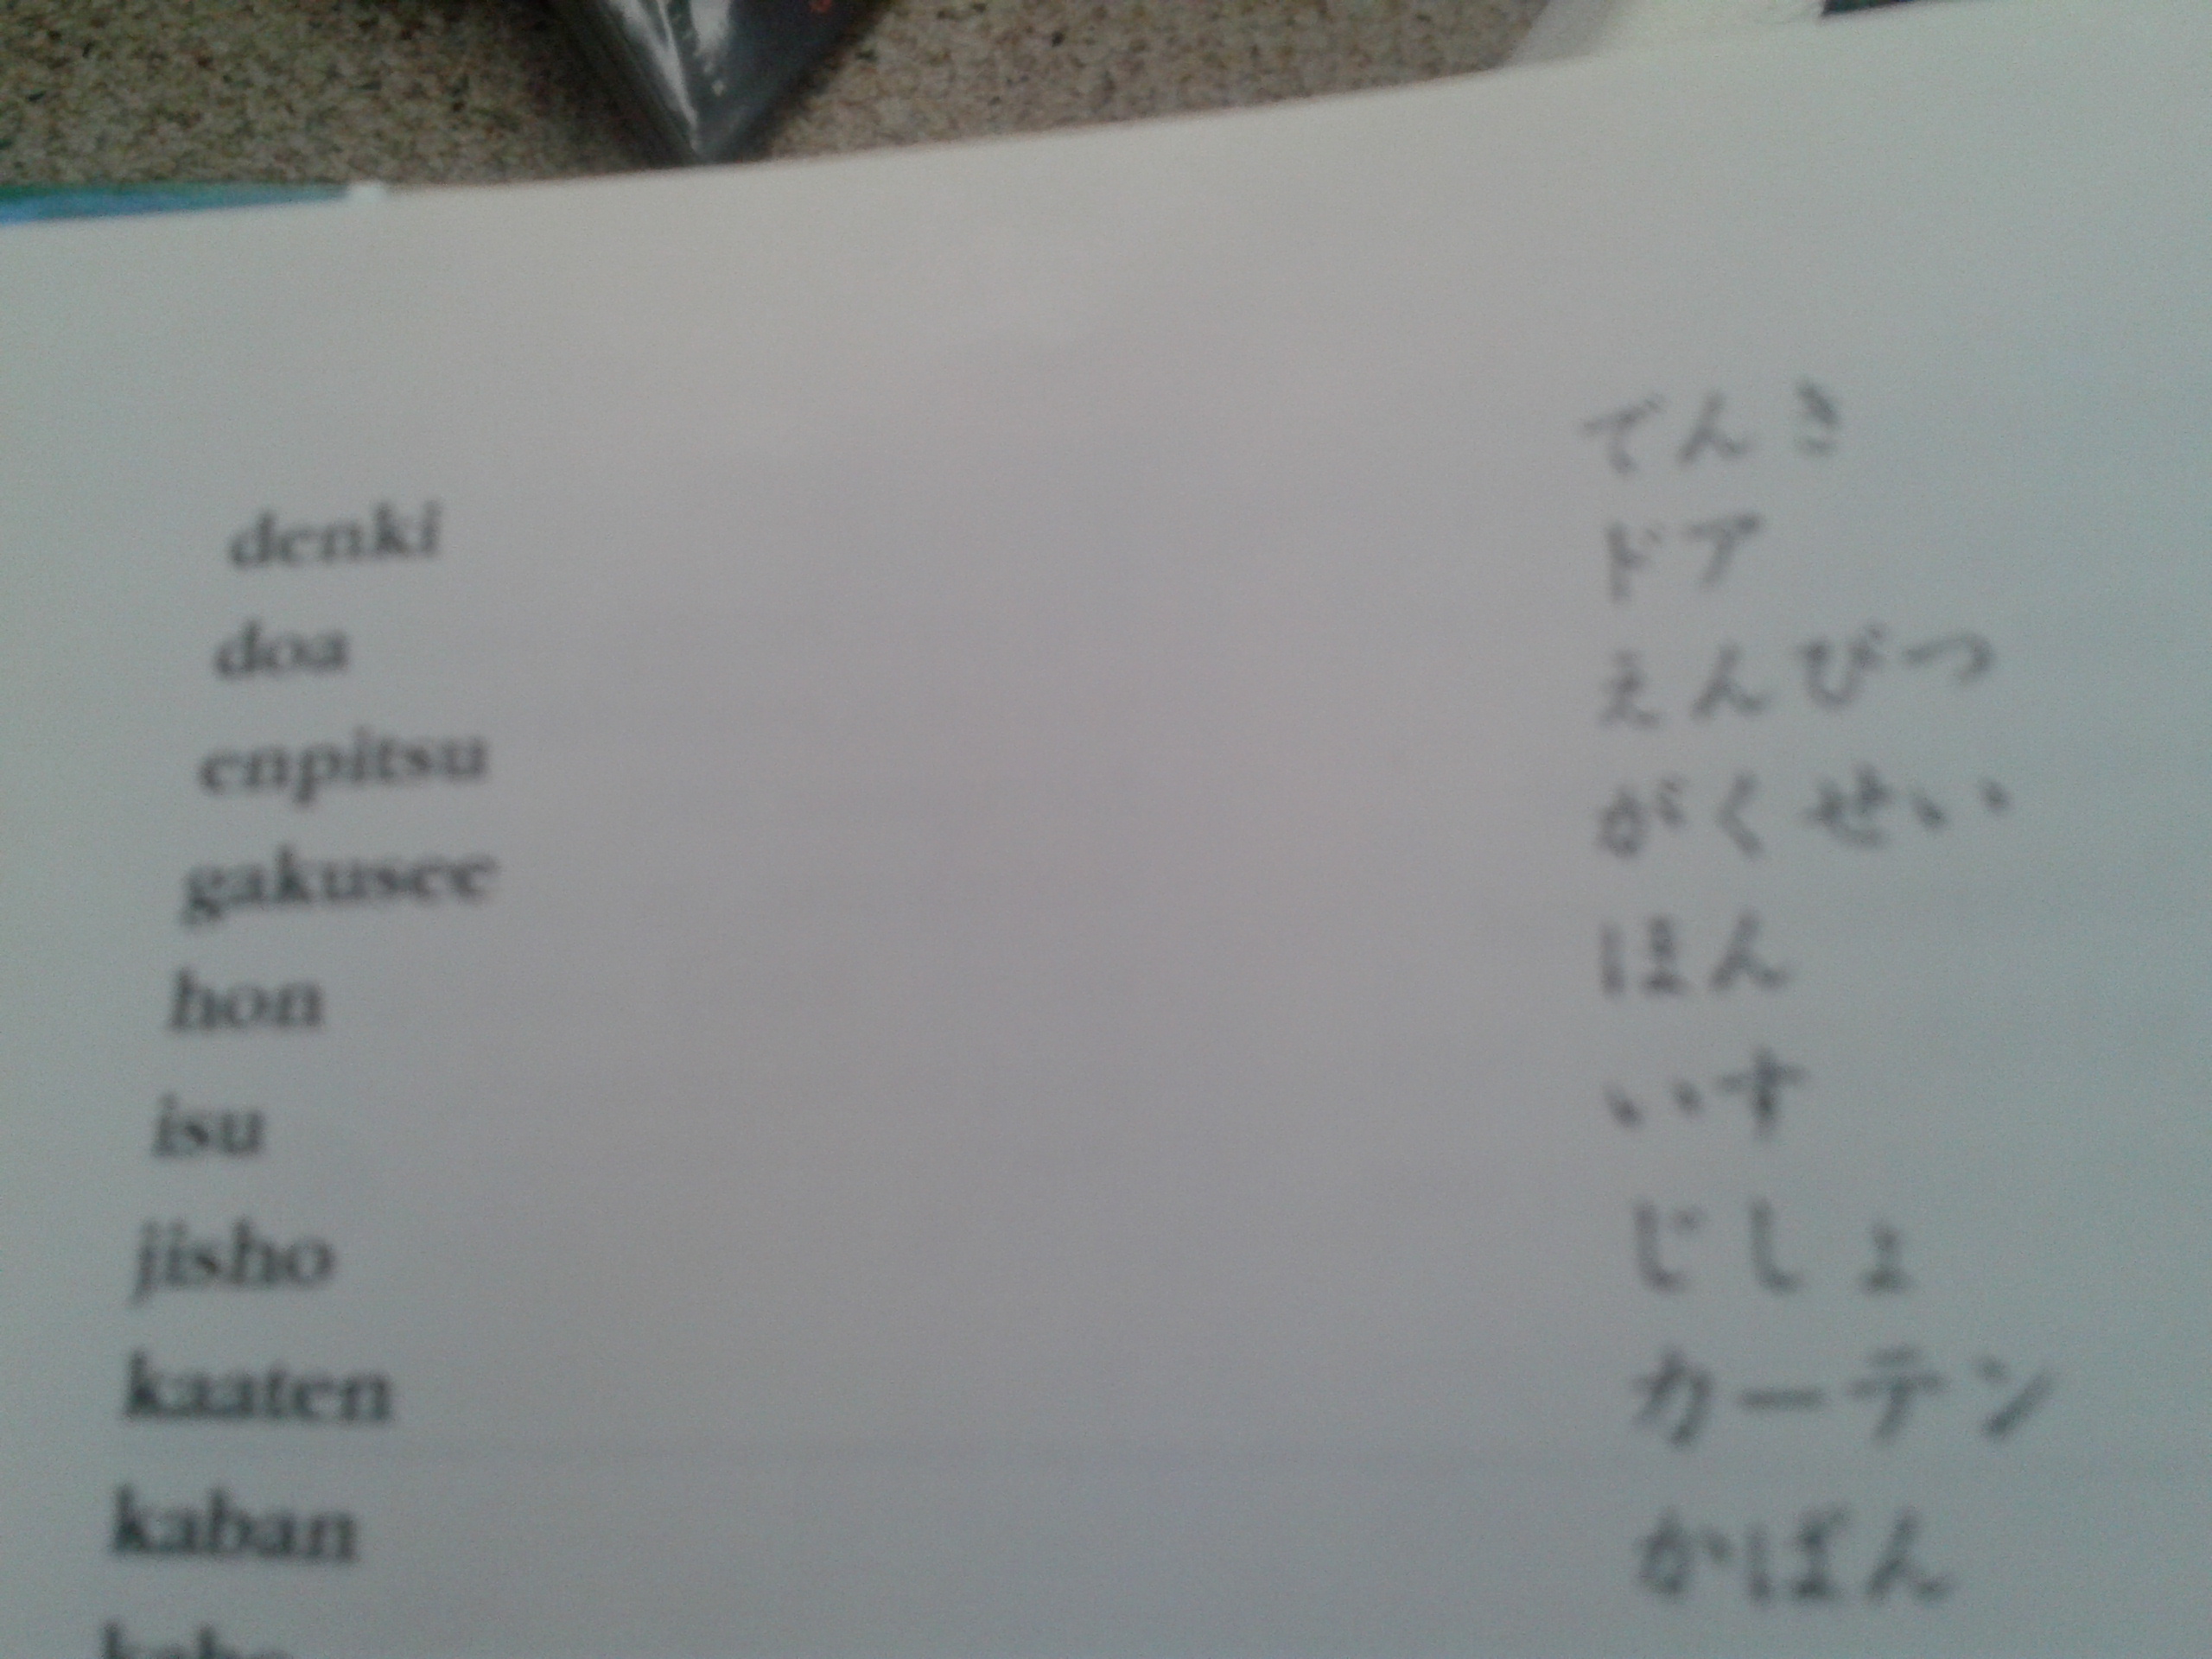 denki でんき
doa ドア
enpitsu えんぴつ
gakusee がくせい
hon ほん
isu いす
jisho じしょ
kaaten カーテン
kaban かばん